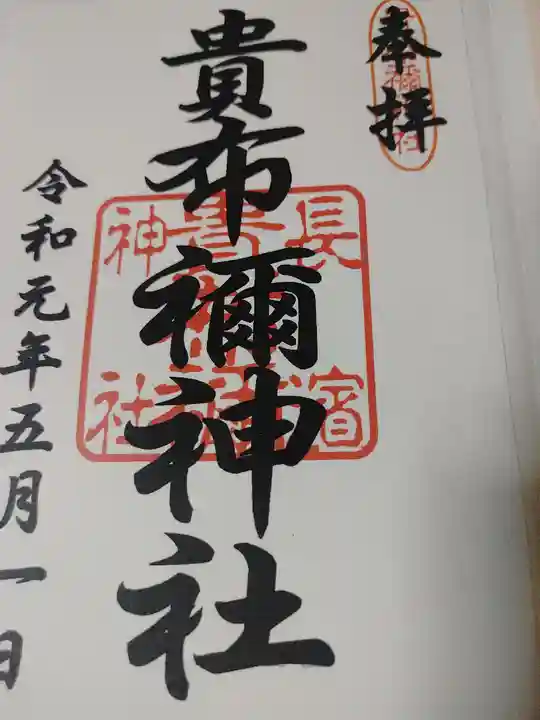 奉拝
貴布禰神社
令和元年五月一日
長濱
神社